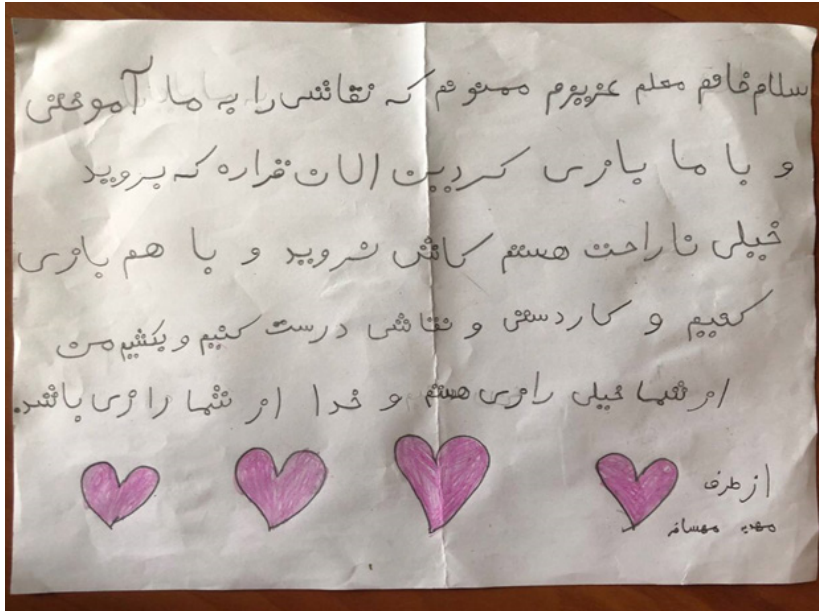 سلام خانم معلم عزیزم ممنونم که نقاشی را به ما آموختی
و با ما بازی کردین الان قراره که بروید
خیلی ناراحت هستم کاش نروید و با هم بازی
کنیم و کاردستی و نقاشی درست کنیم و بکشیم من
از شما خیلی رازی هستم و خدا از شما رازی باشد.
از طرف
مسافر